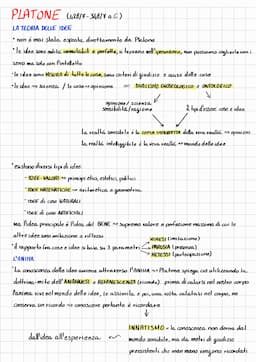 PLATONE (428/7 - 348/7 a.C.)
LA TEORIA DELLE IDEE
• non è mai stata esposta direttamente da Platone
• le idee sono entità immutabili e perfette, si trovano nell'iperuranio, non possiamo coglierle con i
sensi ma solo con l'intelletto
• le idee sono misura di tutte le cose, sono criteri di giudizio e causa delle cose
• le idee → scienza / le cose → opinione = DUALISMO GNOSEOLOGICO e ONTOLOGICO
opinione / scienza
sensibilità / ragione
2 tipi d'essere cose e idee
la realtà sensibile è la copia imperfetta della vera realtà → opinioni
la realtà intelleggibile è la vera realtà → mondo delle idee
• esistono diversi tipi di idee:
- IDEE-VALORI → principi etici, estetici, politici
- IDEE MATEMATICHE → aritmetica e geometria
- IDEE di cose NATURALI
- IDEE di cose ARTIFICIALI
ma l'idea principale è l'idea del BENE → supremo valore e perfezione massima di cui le
altre idee sono imitazione o riflesso
• il rapporto fra cose e idee si basa su 3 parametri
MIMESI (imitazione)
PARUSIA (presenza)
METESSI (partecipazione)
L'ANIMA
• la conoscenza delle idee avviene attraverso l'ANIMA → Platone spiega ciò utilizzando la
dottrina della dell'ANAMNESI o REMINISCENZA (ricordo): prima di calarsi nel nostro corpo
l'anima vive nel mondo delle idee, le assimila, e poi, una volta calatasi nel corpo, ne
conserva un ricordo ⇒ conoscere pertanto è ricordare
dall'idea all'esperienza
INNATISMO - la conoscenza non deriva dal
mondo sensibile, ma da metri di giudizio
preesistenti che man mano vengono ricordati